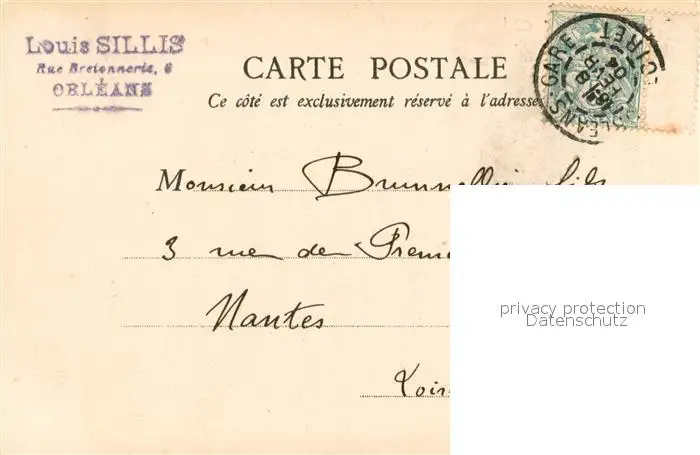 Louis SILLIS
Rue Bretonnerie, 6
ORLÉANS
CARTE POSTALE
Ce côté est exclusivement réservé à l'adresse
ORLEANS GARE
LOIRET
FEVR
04
Monsieur fils
3 rue de
Nantes
Loir
privacy protection
Datenschutz